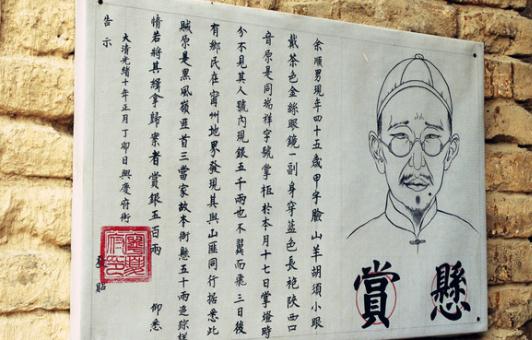 懸賞
余順男現年四十五歲甲字臉山羊胡須小眼
戴茶色金絲眼鏡一副身穿藍色長袍陝西口
音原是同瑞祥字號掌柜於本月十七日掌燈時
分不見其人號內現銀五千兩也不翼而飛三日後
有鄉民在甯州地界發現其與山匪同行據悉此
賊原是黑風嶺匪首三當家故本衙懸五十兩追踪
情若將其緝拿歸案者賞銀五百兩 仰悉
大清光緒十年正月丁卯日興慶府衙
告示